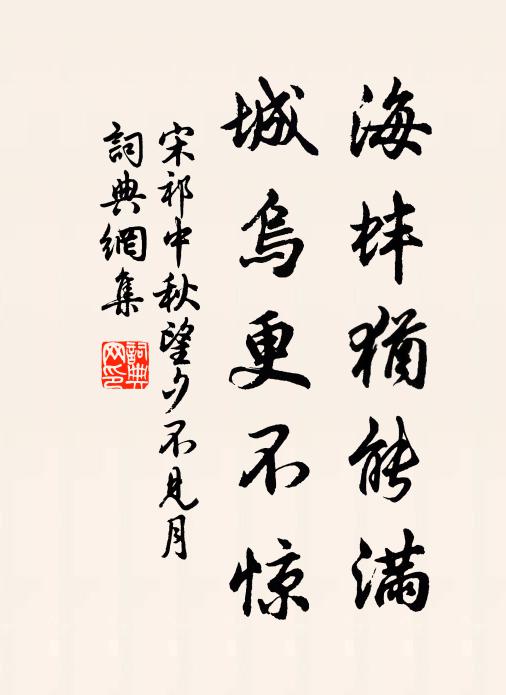 海蚌猶能滿
城烏更不惊
宋祁中秋望夕不見月
詞典網集
詞典
网印